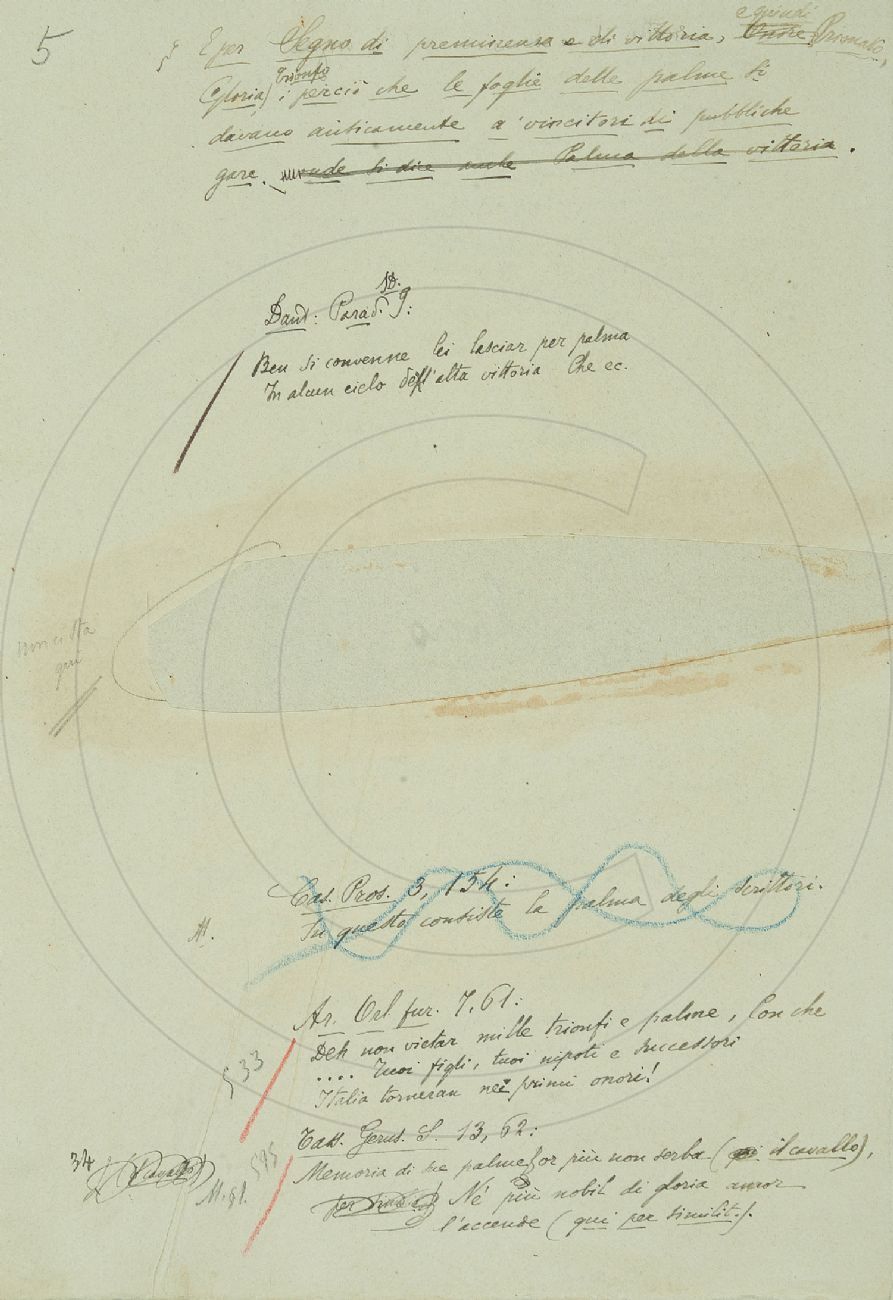 5
e quindi
§ E per Segno di preminenza e di vittoria, Onore, Primato,
trionfo
Gloria; perciò che le foglie delle palme si
davano anticamente a' vincitori di pubbliche
gare. onde si dice anche Palma della vittoria.
D.
Dant: Parad. 9:
Ben si convenne lei lasciar per palma
In alcun cielo dell'alta vittoria Che ec.
Cas. Pros. 3, 154:
In questo consiste la palma degli scrittori.
M.
Ar. Orl. fur. 7, 61:
Deh non vietar mille trionfi e palme, Con che
.... Tuoi figli, tuoi nipoti e successori
Italia torneran nei primi onori!
§ 33
Tass. Gerus. S. 13, 62:
Memoria di sue palme or più non serba (qui il cavallo),
Nè più nobil di gloria amor
l'accende (qui per similit.).
34
(Cavallo)
M. §1.
595